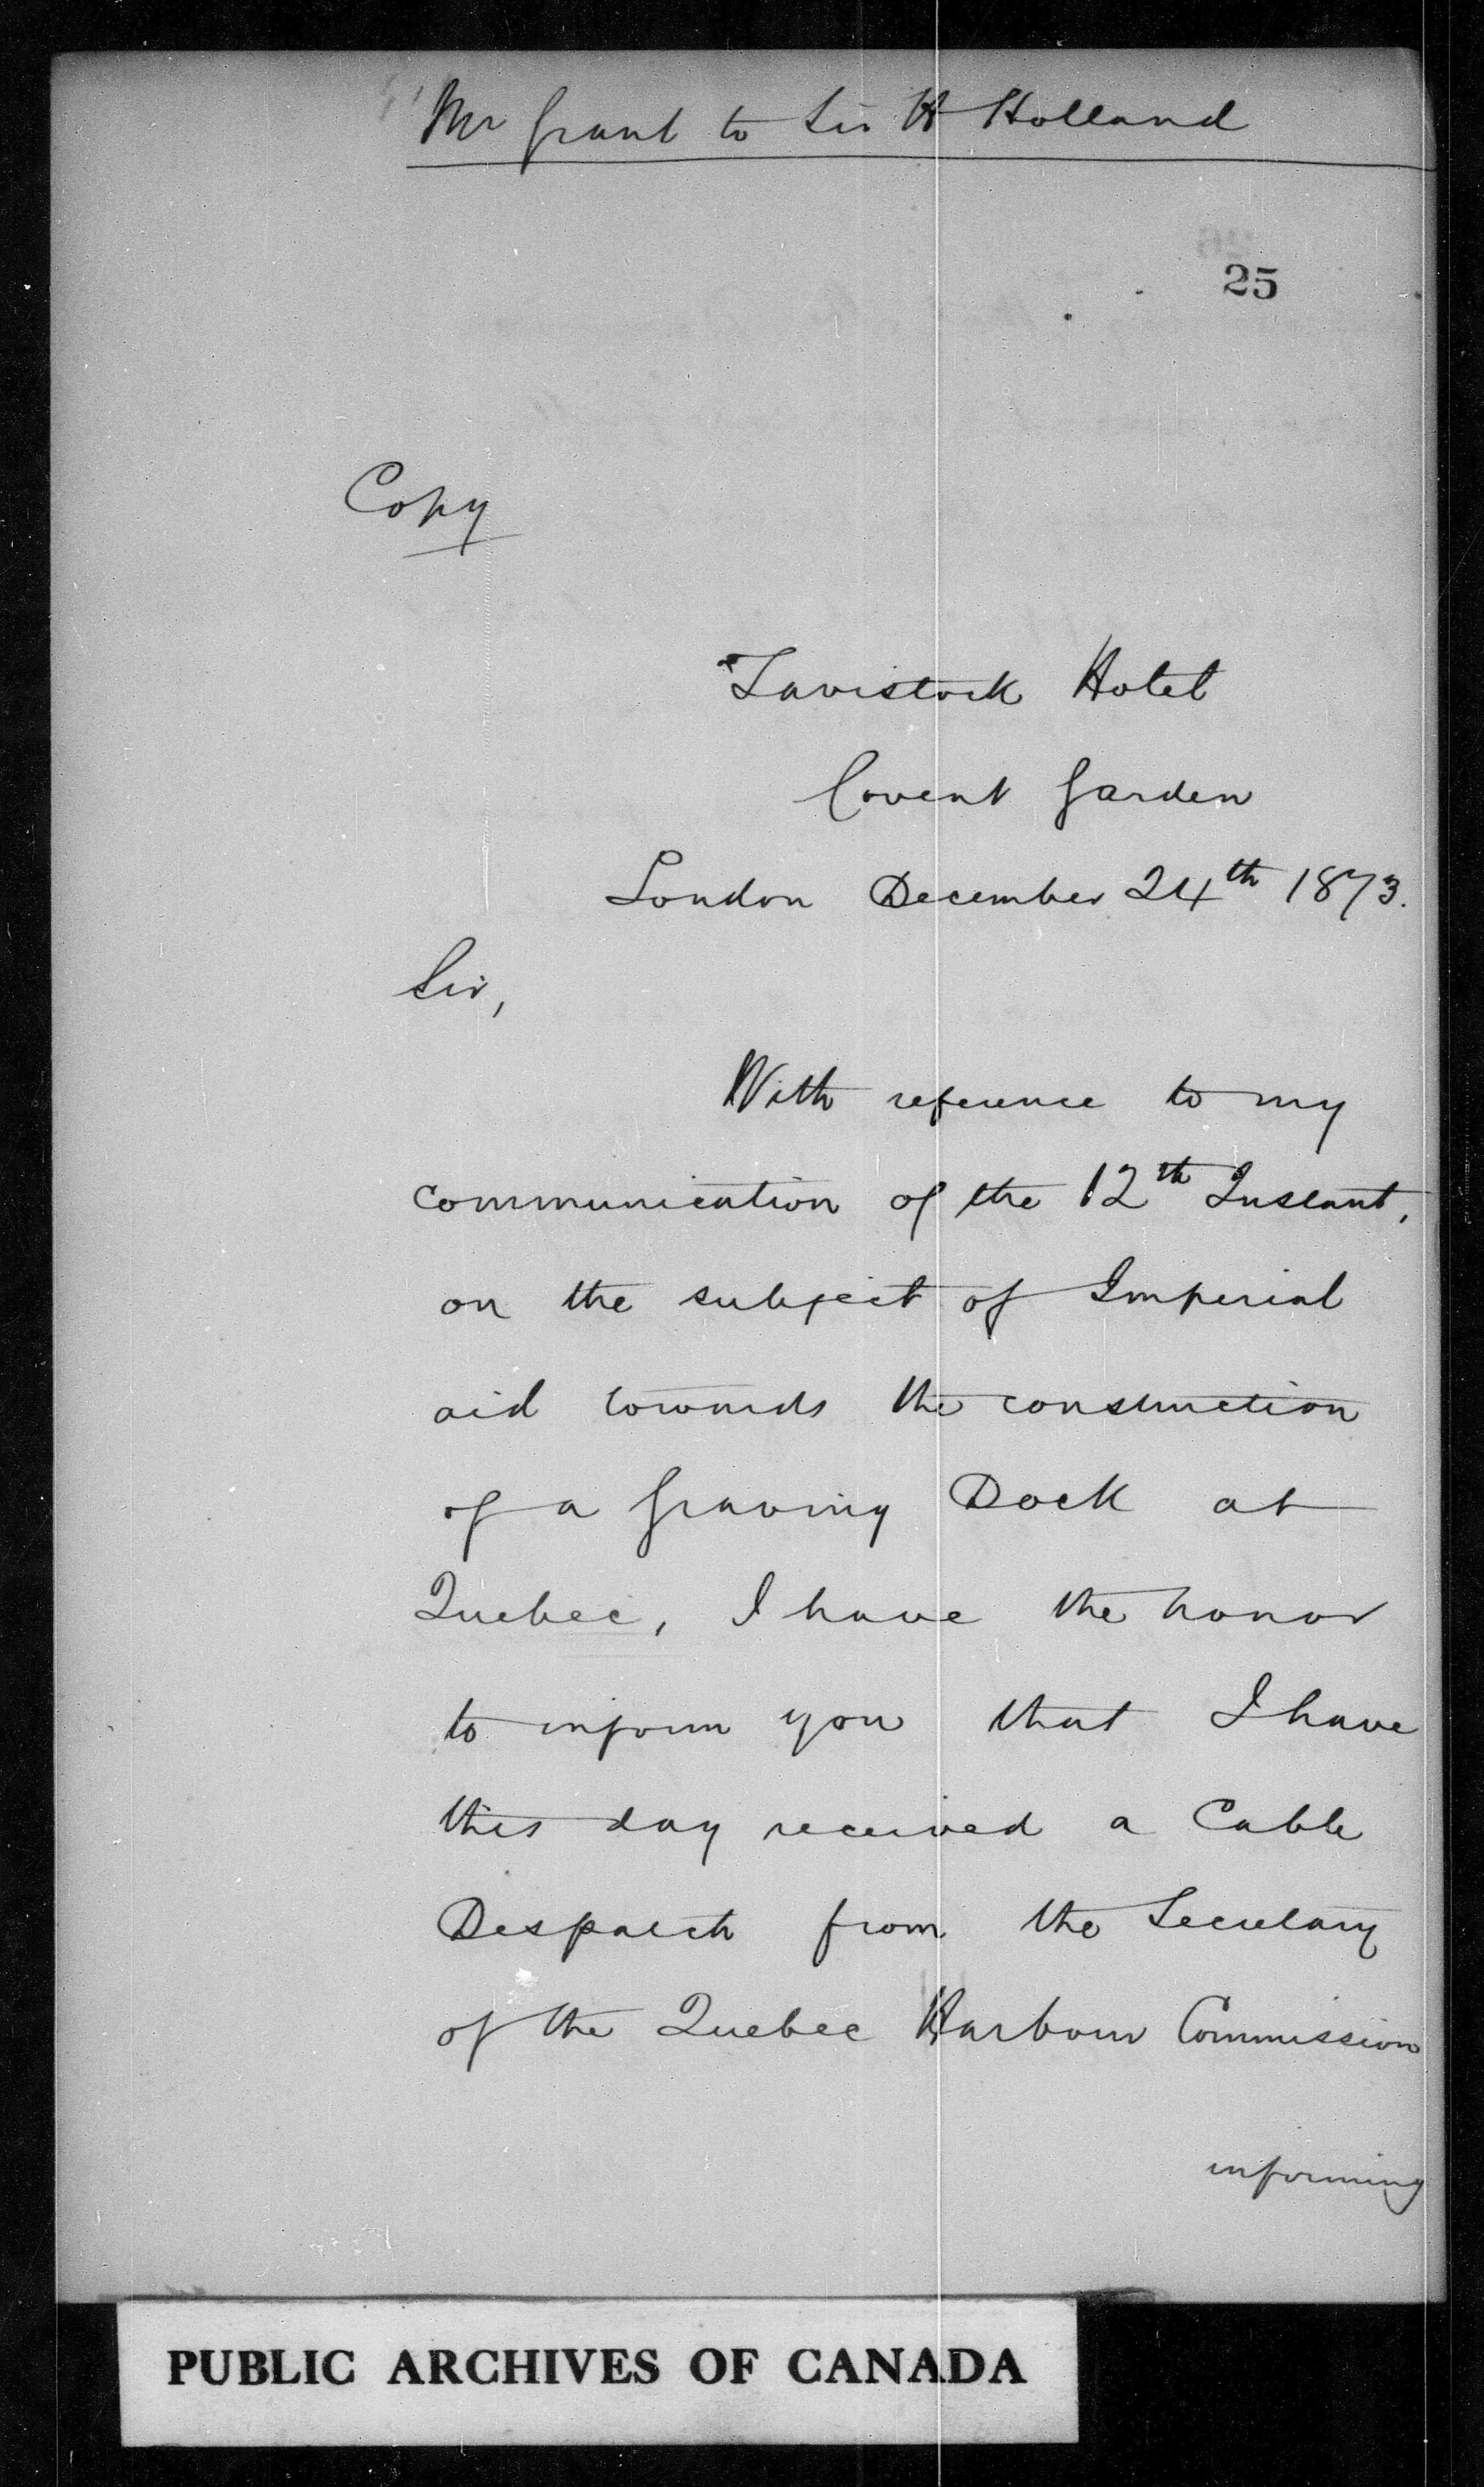 Mr Grant to Sir H Holland
25
Copy
Tavistock Hotel
Covent Garden
London December 24th 1873.
Sir,
With reference to my
communication of the 12th Instant,
on the subject of Imperial
aid towards the construction
of a Graving Dock at
Quebec, I have the honor
to inform you that I have
this day received a Cable
Despatch from the Secretary
of the Quebec Harbour Commission
informing
PUBLIC ARCHIVES OF CANADA